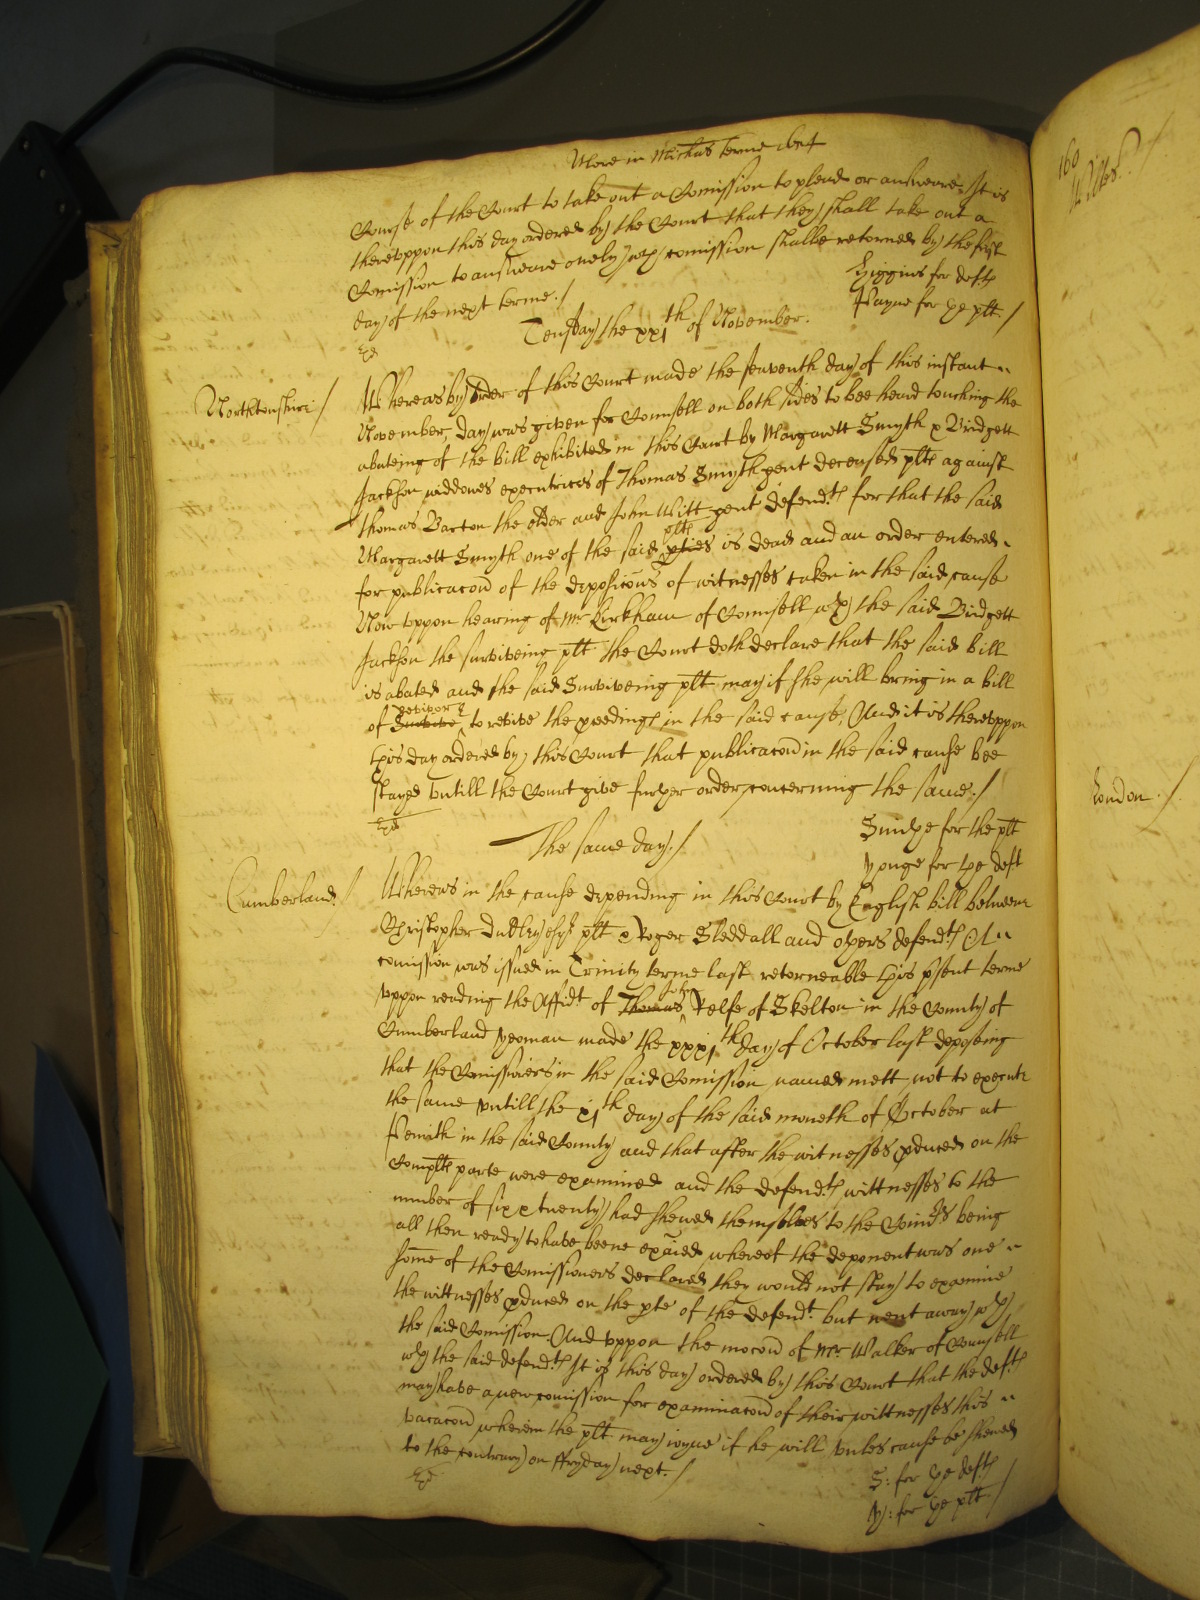 More in Michas terme
Course of the Court to take out a Comission to plead or answeare, It is
therevppon this day ordered by the Court that they shall take out a
Comission to answeare onely wch comission shalbe retorned by the first
day of the next terme./
Higgins for deftes
Payne for ye plt./
Ex
Tensday the xxjth of November.
Northtonshire/
Whereas by order of this Court made the seaventh day of this instant
November, day was given for Counsell on both sides to bee heard touching the
abateing of the bill exhibited in this Court by Margarett Smyth & Bridgett
Jackson widdowes executrices of Thomas Smyth gent deceased plts against
Thomas Barton the elder and John Witt gent defendts for that the said
Margarett Smyth one of the said pties plts is dead and an order entered
for publicacon of the deposicons of witnesses taken in the said cause
Now vppon hearing of Mr Kirkham of Counsell wth the said Bridgett
Jackson the surviveing plt the Court doth declare that the said bill
is abated and the said Surviveing plt may if she will bring in a bill
of Survive revivor to revive the pceedings in the said cause, And it is therevppon
this day ordered by this Court that publicacon in the said cause bee
stayed vntill the Court give further order concerning the same./
Ex
Smithe for the plt
Yonge for the deft
The same day./
Cumberland./
Whereas in the cause depending in this Court by English bill betweene
Christopher Dudley esqr plt & Roger Sleddall and others defendts A
comission was issued in Trinity terme last retorneable this psent terme
vppon reading the Affidt of Thomas John Relfe of Skelton in the County of
Cumberland yeoman made the xxxjth day of October last deposeing
that the Comissioners in the said Comission named mett not to execute
the same vntill the xjth day of the said moneth of October at
Penrith in the said County and that after the witnesses pduced on the
Complts parte were examined and the defendts wittnesses to the
number of six & twenty had shewed themselves to the Comrs being
all then ready to have beene exãied whereof the deponent was one
some of the Comissioners declared they would not stay to examine
the wittnesses pduced on the pte of the defendt but went away wth
the said Comission And vppon the mocon of Mr Walker of Counsell
wth the said defendts It is this day ordered by this Court that the defts
may have a new comission for examinacon of their wittnesses this
vacacon wherein the plt may ioyne if he will vnles cause be shewed
to the contrary on ffryday next./
Ex
S: for ye defts
Y: for ye plt/
160
London./